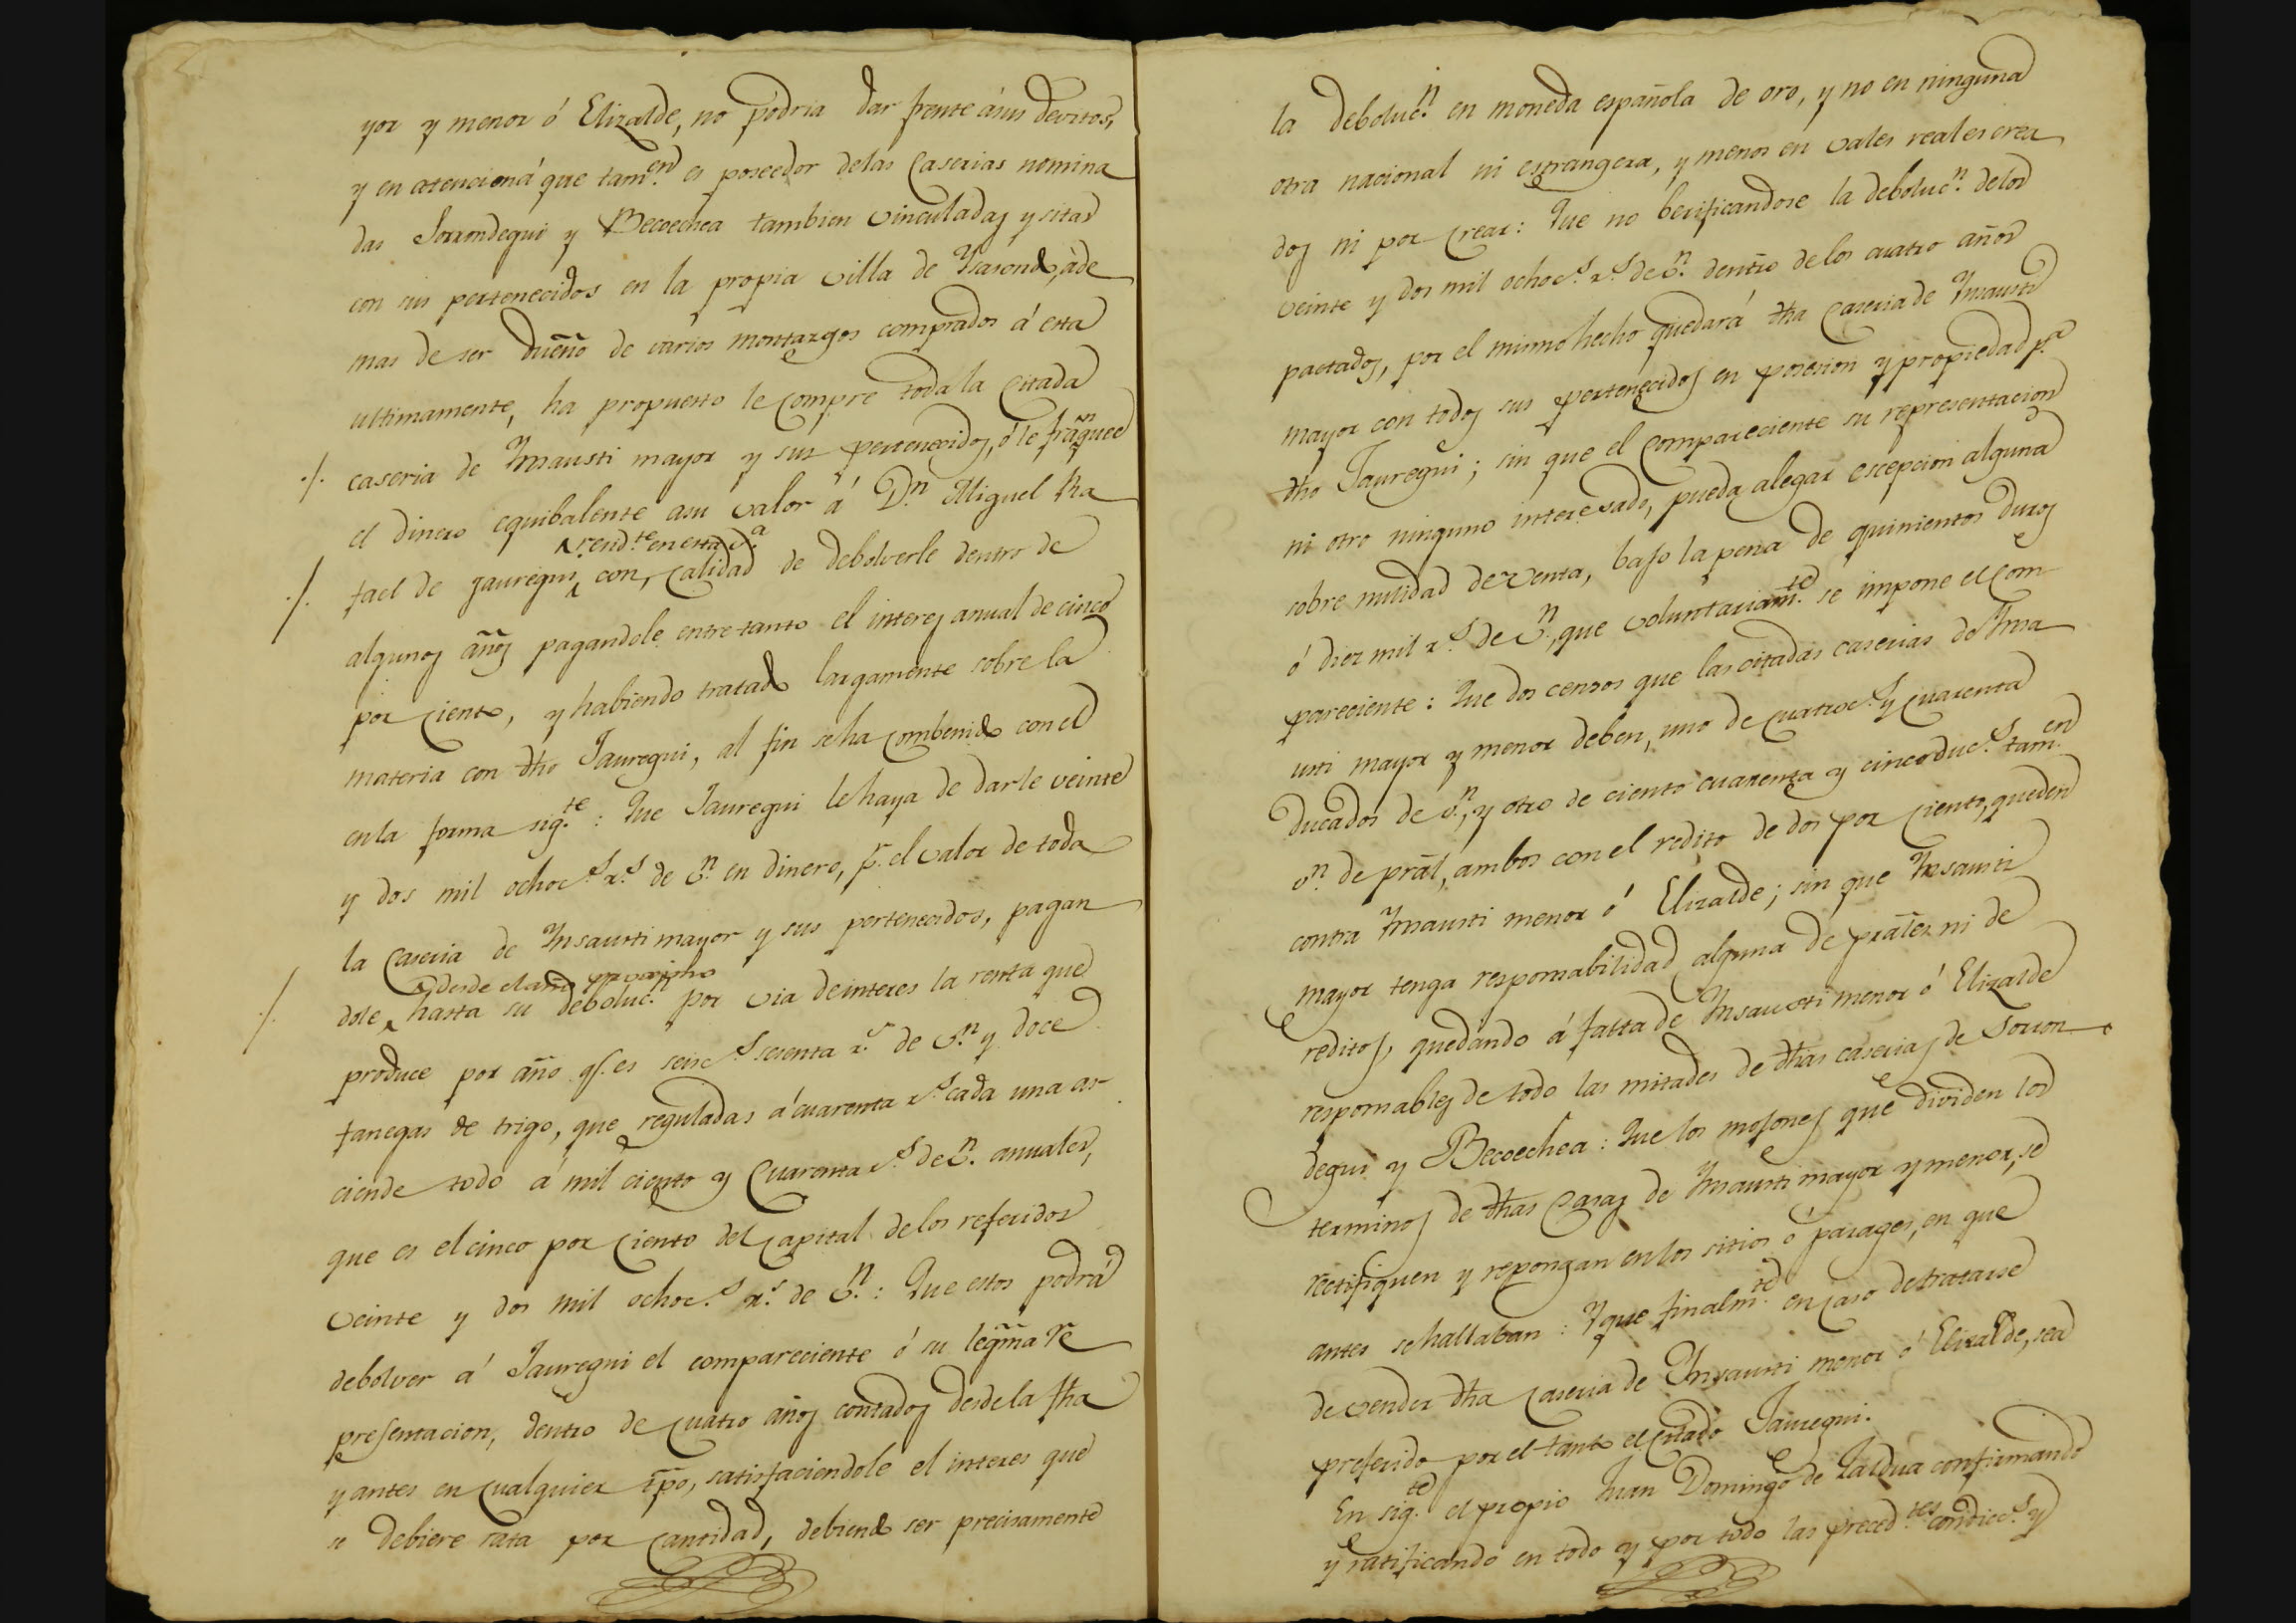 yor y menor ó Elizalde, no podria dar frente á sus devitos,
y en atencion á que tam.en es poseedor delas Caserias nomina
das Sorrondegui y Becoechea tambien vinculadas y sitas
con sus pertenecidos en la propia villa de Ysasondo, áde
mas de ser dueño de varios montazgos comprados á esta
ultimamente, ha propuesto le compre toda la citada
./. caseria de Ynsausti mayor y sus pertenecidos, ó le franquee
el dinero equibalente asu valor á D.n Miguel Ra
resid.te en esta v.a
./. fael de Jauregui, con calidad de debolverle dentro de
algunos años pagandole entre tanto el interes anual de cinco
por ciento, y habiendo tratado largamente sobre la
materia con dho Jauregui, al fin se ha combenido con el
en la forma sig.te : Que Jauregui le haya de darle veinte
y dos mil ochoc.s r.s de v.n en dinero, p.r el valor de toda
la Caseria de Ynsausti mayor y sus pertenecidos, pagan
desde el año proximo
./. dole hasta su deboluc.n por via de interes la renta que
produce por año q.e es seisc.s sesenta r.s de v.n y doce
fanegas de trigo, que reguladas á cuarenta r.s cada una as-
ciende todo á mil ciento y cuarenta r.s de v.n anuales,
que es el cinco por ciento del capital de los referidos
veinte y dos mil ochoc.s r.s de v.n : Que estos podrá
debolver á Jauregui el compareciente ó su legma re
presentacion, dentro de cuatro años contados desde la fha
y antes en cualquier tpo, satisfaciendole el interes que
se debiere rata por cantidad, debiendo ser precisamente
la deboluc.n en moneda española de oro, y no en ninguna
otra nacional ni estrangera, y menos en vales reales crea
dos ni por crear: Que no berificandose la deboluc.n delos
veinte y dos mil ochoc.s r.s de v.n dentro de los cuatro años
pactados, por el mismo hecho quedará dha Caseria de Ynsausti
mayor con todos sus pertenecidos en posesion y propiedad p.a
dho Jauregui; sin que el compareciente su representacion
ni otro ninguno interesado, pueda alegar escepcion alguna
sobre nulidad de venta, bajo la pena de quinientos duros
ó diez mil r.s de v.n, que voluntariam.te se impone el com-
pareciente: Que dos censos que las citadas caserias de Ynsa
usti mayor y menor deben, uno de cuatroc.s y cuarenta
Ducados de v.n, y otro de ciento cuarenta y cinco duc.s tam.en
v.n de pral, ambos con el redito de dos por ciento, queden
contra Ynsausti menor ó Elizalde; sin que Ynsausti
mayor tenga responsabilidad alguna de prales ni de
reditos, quedando á falta de Ynsausti menor ó Elizalde
responsables de todo las mitades de dhas caserias de Sorron-
degui y Becoechea: Que los mojones que dividen los
terminos de dhas Casas de Ynsausti mayor y menor, se
rectifiquen y repongan en los sitios ó parages, en que
antes se hallaban: Y que finalm.te en caso de tratarse
de vender dha caseria de Ynsausti menor ó Elizalde, sea
preferido por el tanto el citado Jauregui.
En sig.te el propio Juan Domingo de Zaldua confirmando
y ratificando en todo y por todo las preced.tes condic.s y